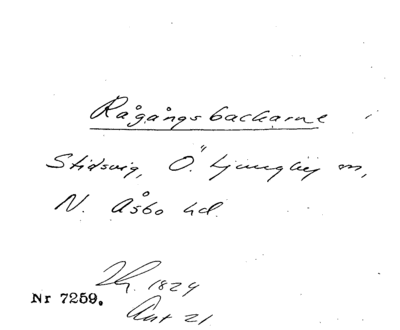 Rågångsbackarne i
Stidsvig, Ö. Ljungby sn,
N. Åsbo hd.
1824
Nr 7259.
Akt 21